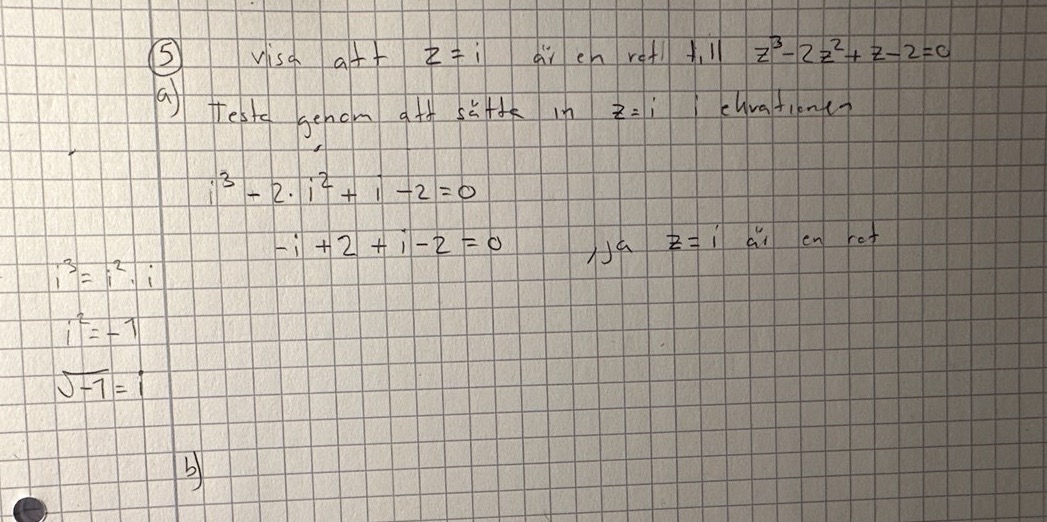 5 visa att z = i är en rot till z³-2z²+z-2=0
a) Testa genom att sätta in z=i i ekvationen
i³ - 2·i² + i -2=0
-i +2 + i -2 =0 , ja z=i är en rot
i³ = i²·i
i² = -1
√-1 = i
b)